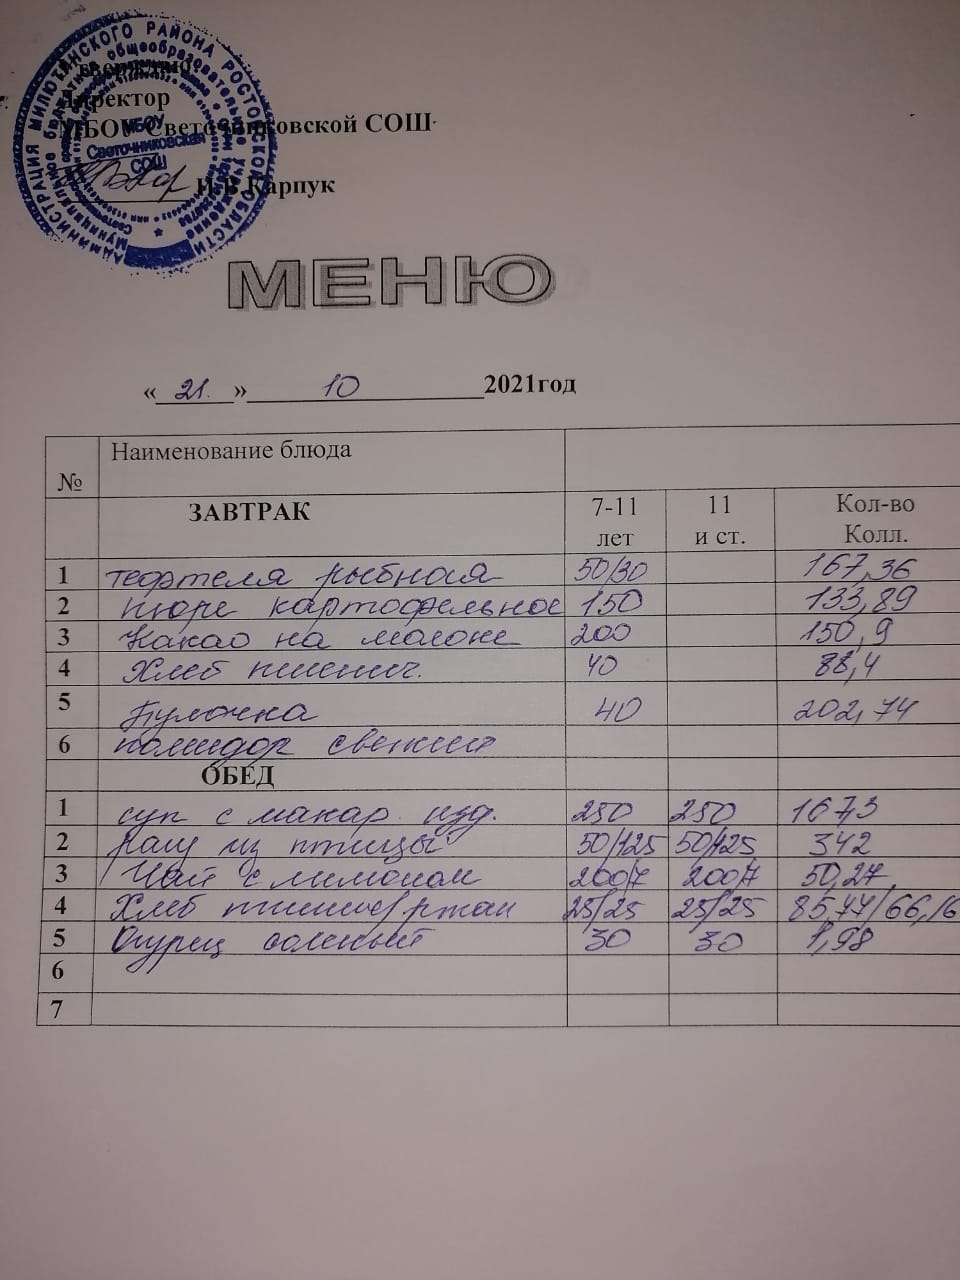 Утверждаю:
Директор
МБОУ Светочниковской СОШ
И.В.Карпук
АДМИНИСТРАЦИЯ МИЛЮТИНСКОГО РАЙОНА РОСТОВСКОЙ ОБЛАСТИ
МБОУ
Светочниковская
СОШ
МЕНЮ
« 21. » 10 2021год
№ Наименование блюда
ЗАВТРАК 7-11 лет 11 и ст. Кол-во Колл.
1 тефтеля рыбная 50/30 167,36
2 пюре картофельное 150 133,89
3 Какао на молоке 200 150,9
4 Хлеб пшенич. 40 88,4
5 Булочка 40 202,74
6 помидор свежий
ОБЕД
1 суп с макар. изд. 250 250 167,3
2 рагу из птицы 50/125 50/125 342
3 Чай с лимоном 200/7 200/7 50,27
4 Хлеб пшенич/ржан 25/25 25/25 85,77/66,16
5 Огурец соленый 30 30 1,98
6
7